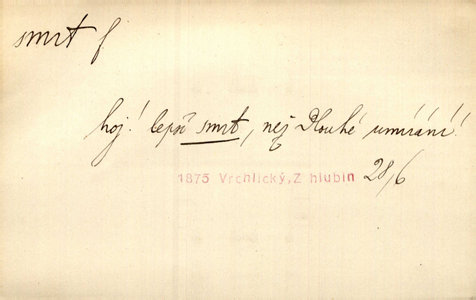 smrt f
hoj! lepší smrt, nej dlouhé umírání!
1875 Vrchlický, Z hlubin 28/6